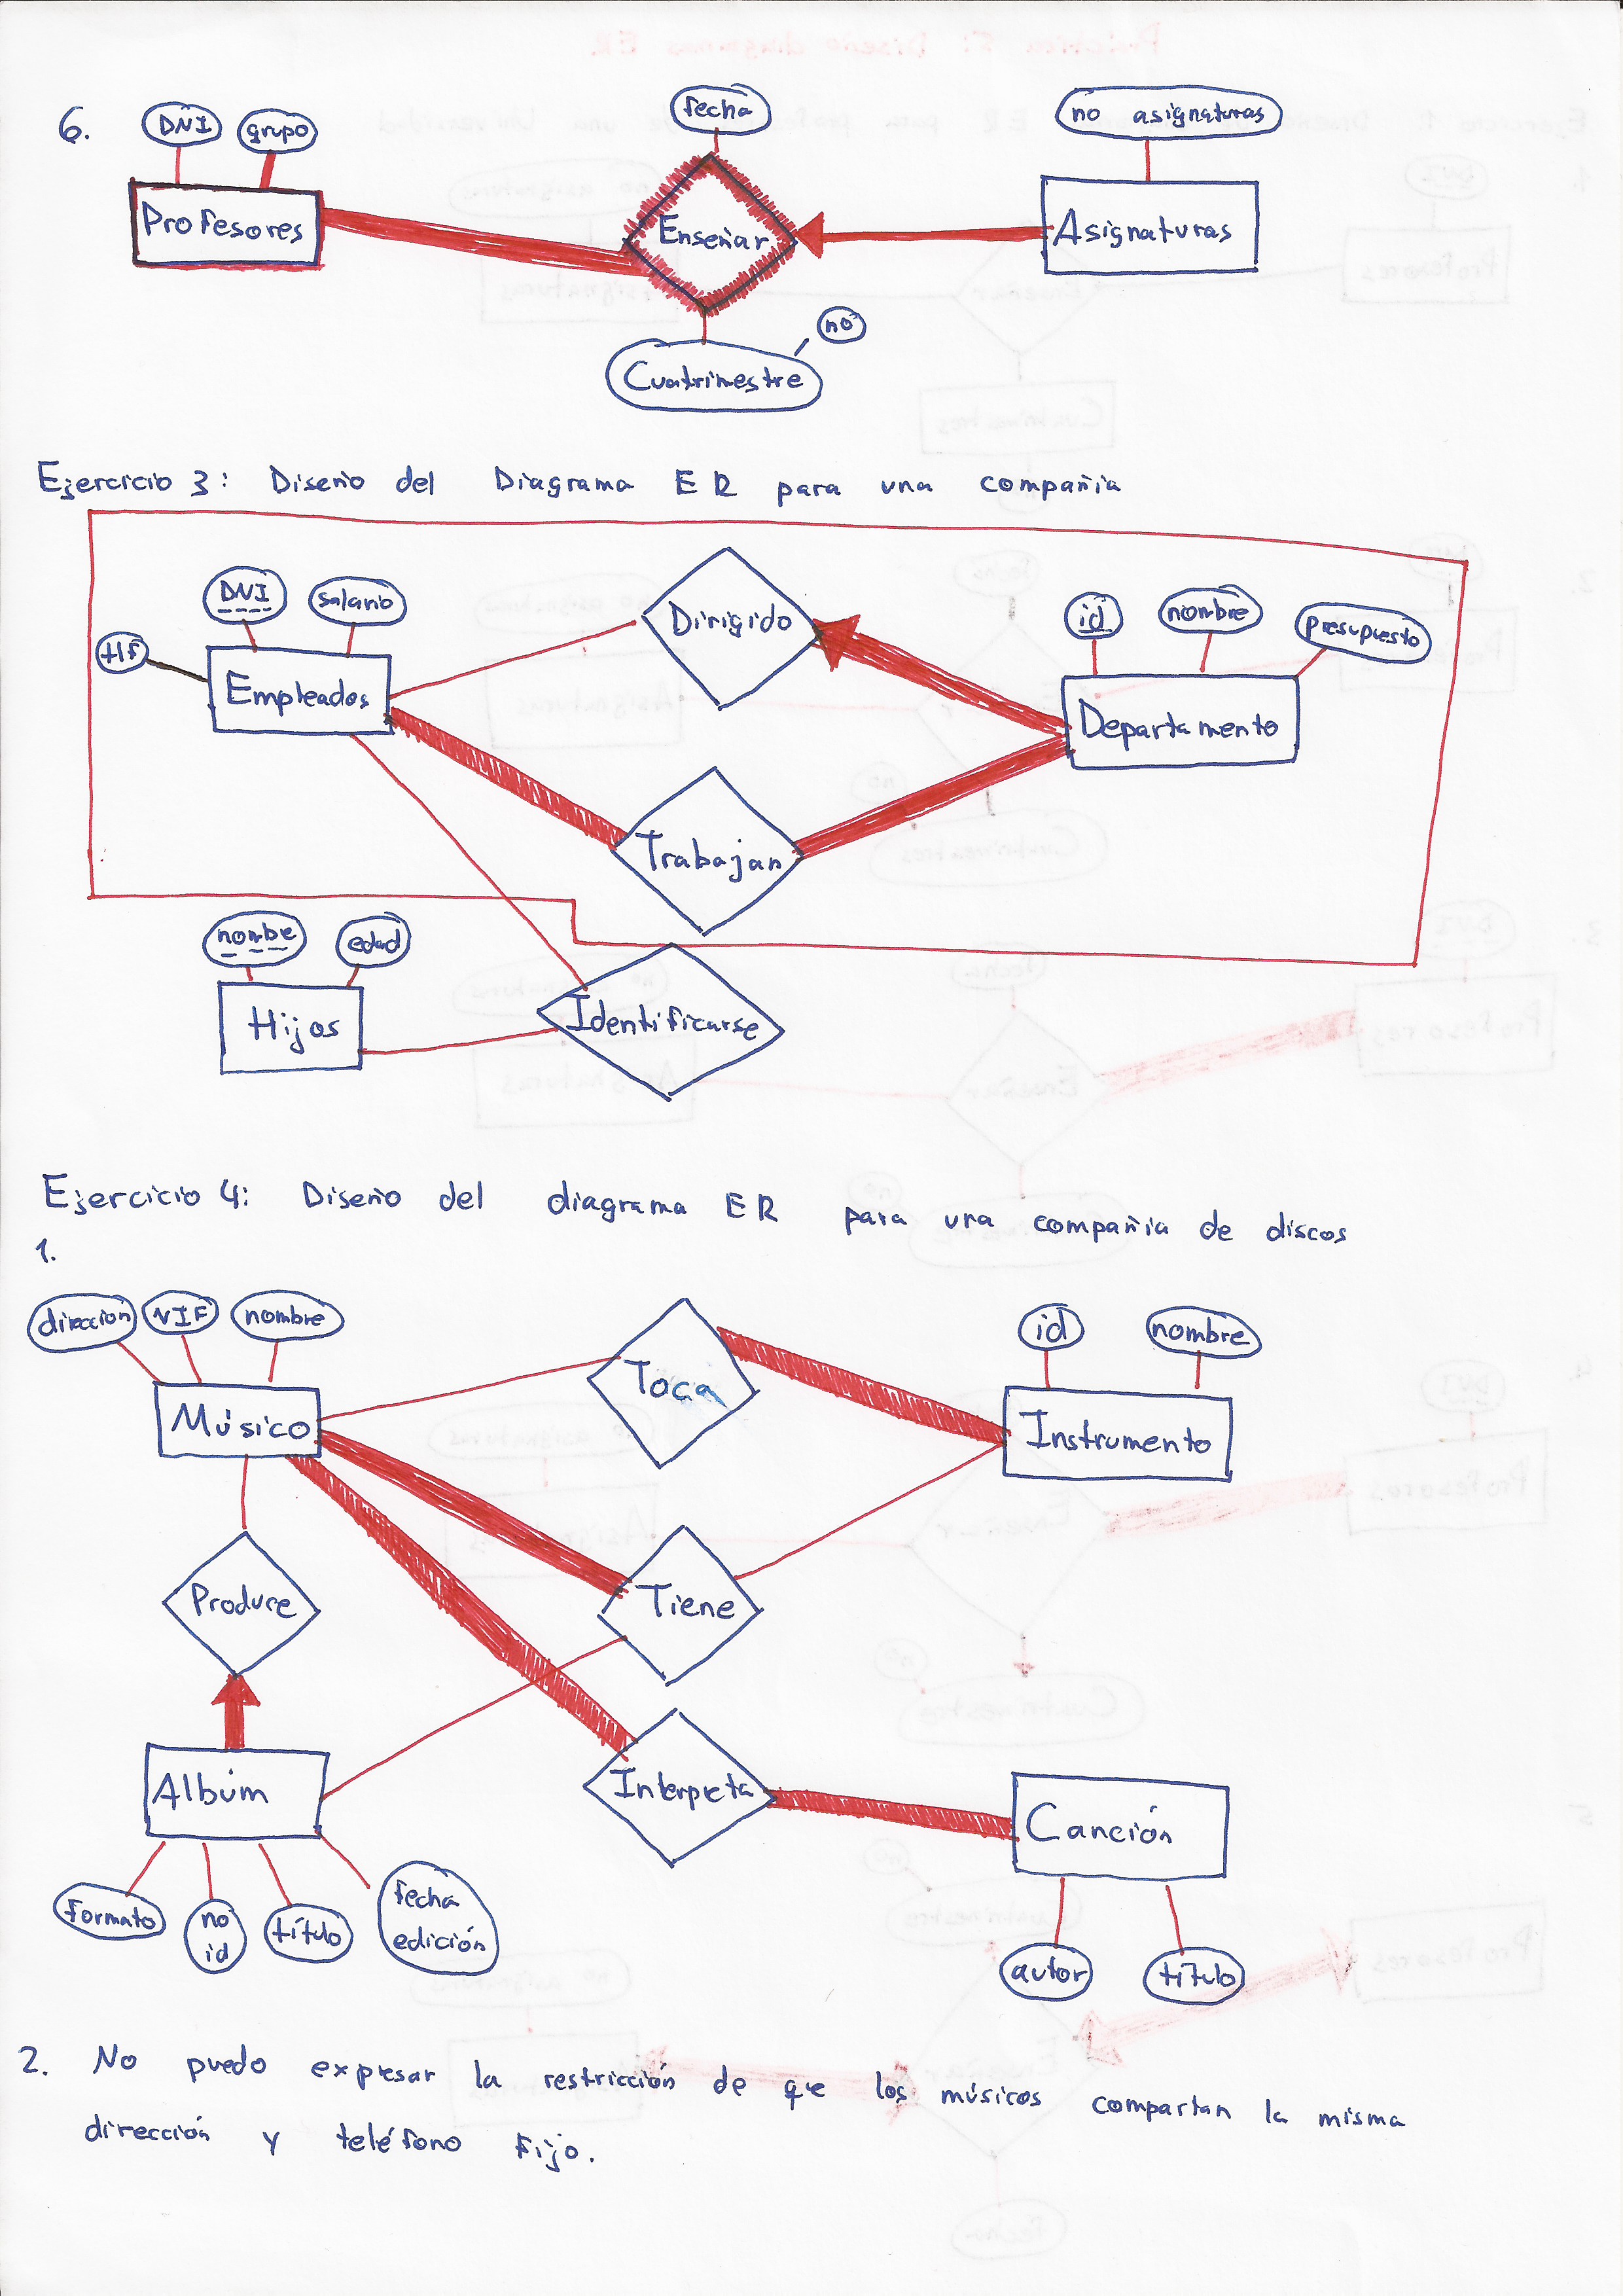 6.
DNI grupo fecha no asignaturas
Profesores Enseñar Asignaturas
no
Cuatrimestre
Ejercicio 3: Diseño del Diagrama ER para una compañia
DNI salario Dirigido id nombre presupuesto
tlf
Empleados Departamento
Trabajan
nombe edad
Hijos Identificarse
Ejercicio 4: Diseño del diagrama ER para una compañia de discos
1.
dirección NIF nombre id nombre
Músico Toca Instrumento
Produce Tiene
Albúm Interpreta Canción
formato no id título fecha edición
autor título
2. No puedo expresar la restricción de que los músicos compartan la misma
dirección y teléfono fijo.